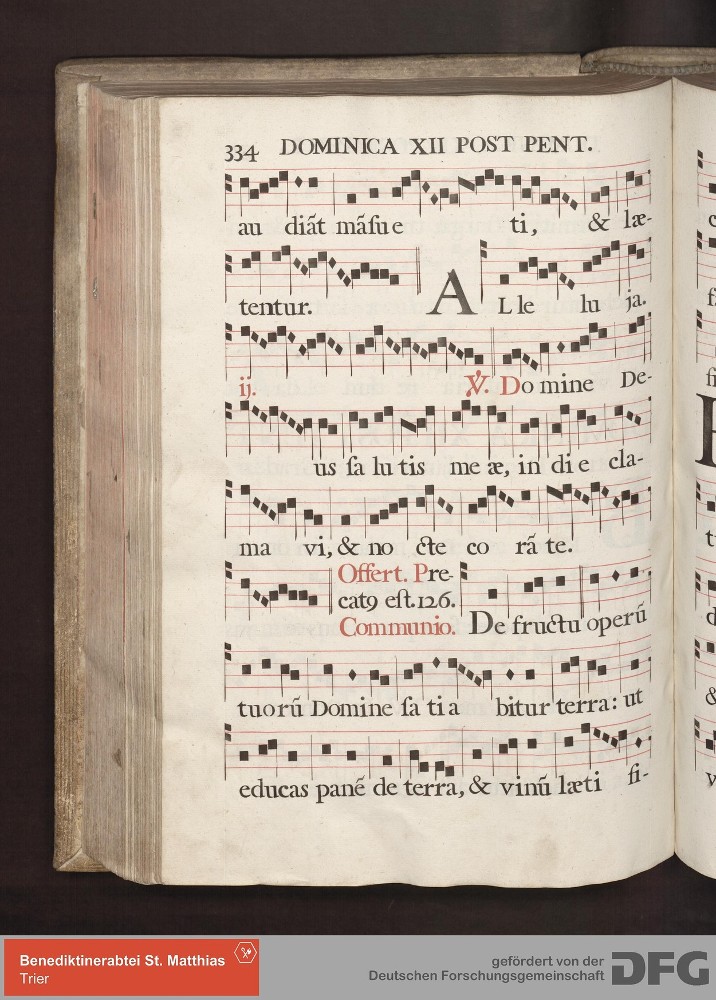 334 DOMINICA XII POST PENT.
au diãt mãſue ti, & læ-
tentur. ALle lu ja.
ij. ℣. Domine De-
us ſa lu tis me æ, in di e cla-
ma vi, & no cte co rã te.
Offert. Pre-
catꝯ eſt. 126.
Communio. De fructu operũ
tuorũ Domine ſa ti a bitur terra: ut
educas panẽ de terra, & vinũ læti fi-
Benediktinerabtei St. Matthias
Trier
gefördert von der
Deutschen Forschungsgemeinschaft
DFG